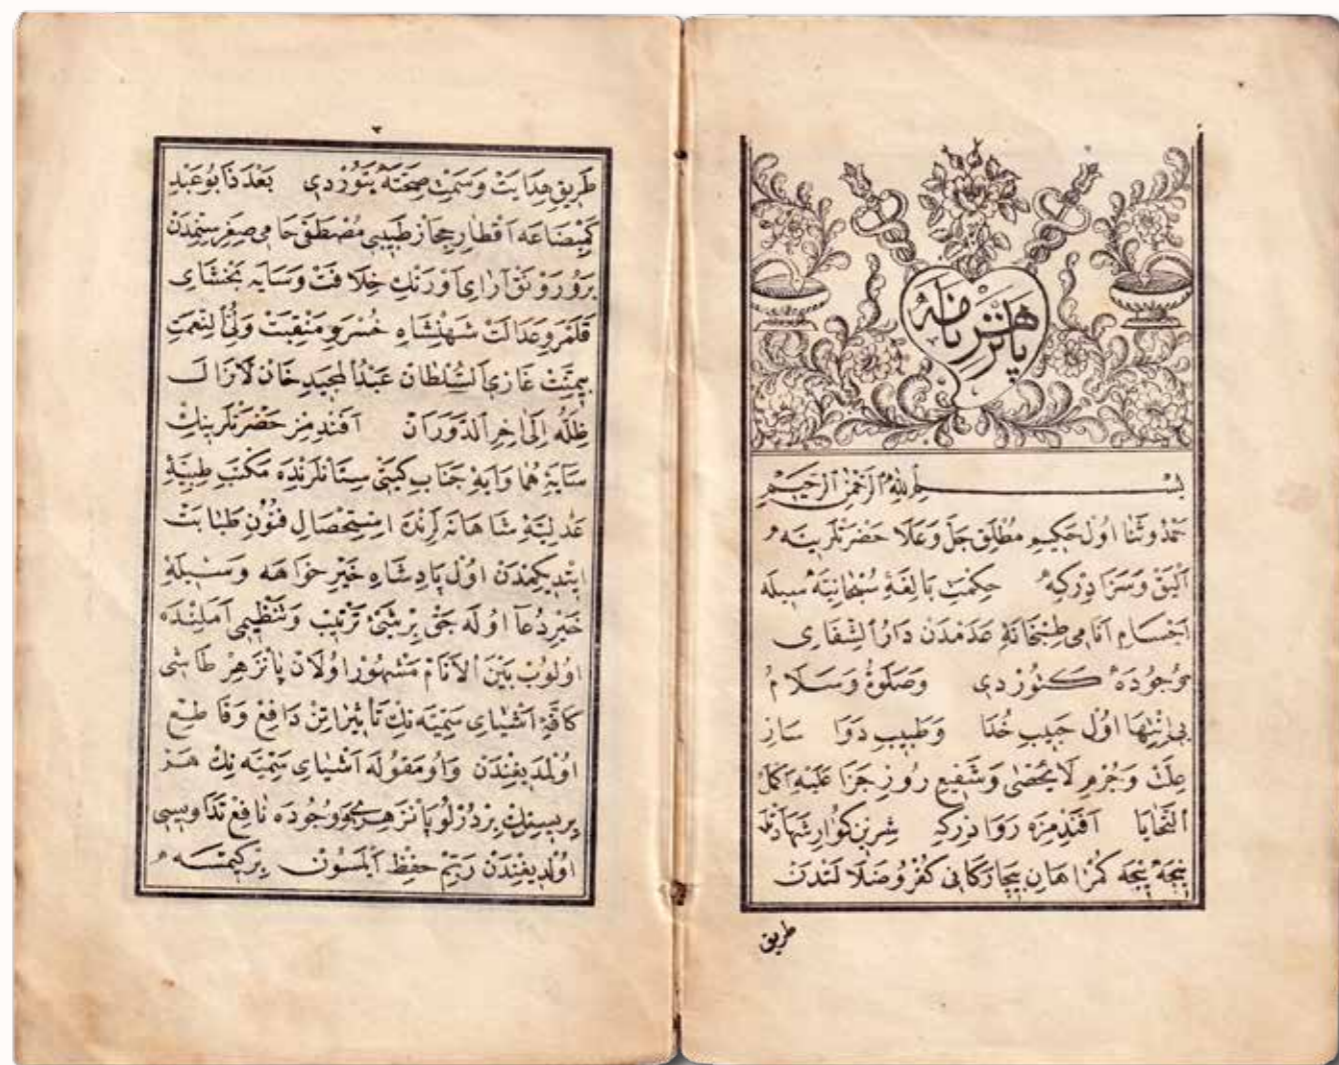 پانزهرنامه
بسم الله الرحمن الرحيم
حمد و ثنا اول حكيم مطلق جل وعلا حضرتلرينه
اليق وسزادركه حكمت بالغۀ سبحانيه سيله
اجسام انامى طبخانۀ عدمدن دار الشفاى
موجوده كتوردى وصلوة وسلام
بى انتها اول حبيب خدا وطبيب دوا ساز
علل وجرم لا يحصى وشفيع روز جزا عليه اكمل
التحايا افندمزه روادركه شربن كوار شهادتله
نيجه نيجه كمراهان بيچاركانى كفر وضلالتدن
طريق
٢
طريق هدايت وسمت صحته يتوردى بعد ذا بو عبد
كم بضاعه اقطار حجاز طبيبى مصطفى حامى صغر سنمدن
برو رونق آراى اورنك خلافت وسايه بخشاى
قلمرو عدالت شهنشاه خسرو منقبت ولى النعمت
بيمنت غازى السلطان عبد المجيد خان لازال
ظله الى اخر الدوران افندمز حضرتلرينك
سايۀ هماوايۀ جناب كيتى ستانلرنده مكتب طبيۀ
عدليۀ شاهانه لرنده استحصال فنون طبابت
ايتديكمدن اول پادشاه خير خواهه وسيلۀ
خير دعا اوله جق بر شئ ترتيب وتنظيمى املنده
اولوب بين الانام مشهور اولان پانزهر طاشى
كافۀ اشياى سميه نك تأثيراتن دافع وقاطع
اولمديغندن واو مقوله اشياى سميه نك هر
بريسينك بر درلو پانزهرى و وجوده نافع تداويسى
اولديغندن ربم حفظ ايلسون بر كيمسه